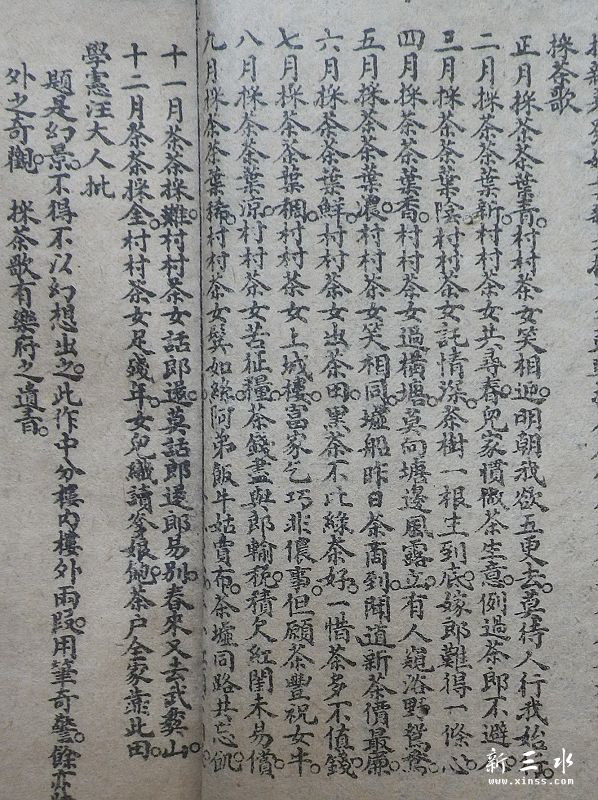 採茶歌
正月採茶茶葉青村村茶女笑相迎明朝我欲五更去莫待人行我始行
二月採茶茶葉新村村茶女共尋春兒家慣做茶生意例過茶郎不避
三月採茶茶葉陰村村茶女託情深茶樹一根生到底嫁郎難得一條心
四月採茶茶葉香村村茶女過橫塘莫向塘邊風露立有人窺浴野鴛鴦
五月採茶茶葉濃村村茶女笑相同墟船昨日茶商到聞道新茶價最廉
六月採茶茶葉鮮村村茶女出茶田黑茶不比綠茶好一惜茶多不值錢
七月採茶茶葉稠村村茶女上城樓富家乞巧非儂事但願茶豐祝女牛
八月採茶茶葉涼村村茶女苦征糧茶錢盡與郎輸稅積欠紅閨未易償
九月採茶茶葉稀村村茶女鬢如絲阿弟飯牛姑賣布茶墟同路共忘飢
十一月茶茶採難村村茶女話郎還莫話郎還郎易別春來又去武彝山
十二月茶茶採全村村茶女足殘年女兒纖讀爹娘飽茶戶全家靠此田
學憲汪大人批
題是幻景不得不以幻想出之此作中分樓內樓外兩段用筆奇警餘亦
外之奇觀 採茶歌有樂府之遺音
新三水
www.xinss.com